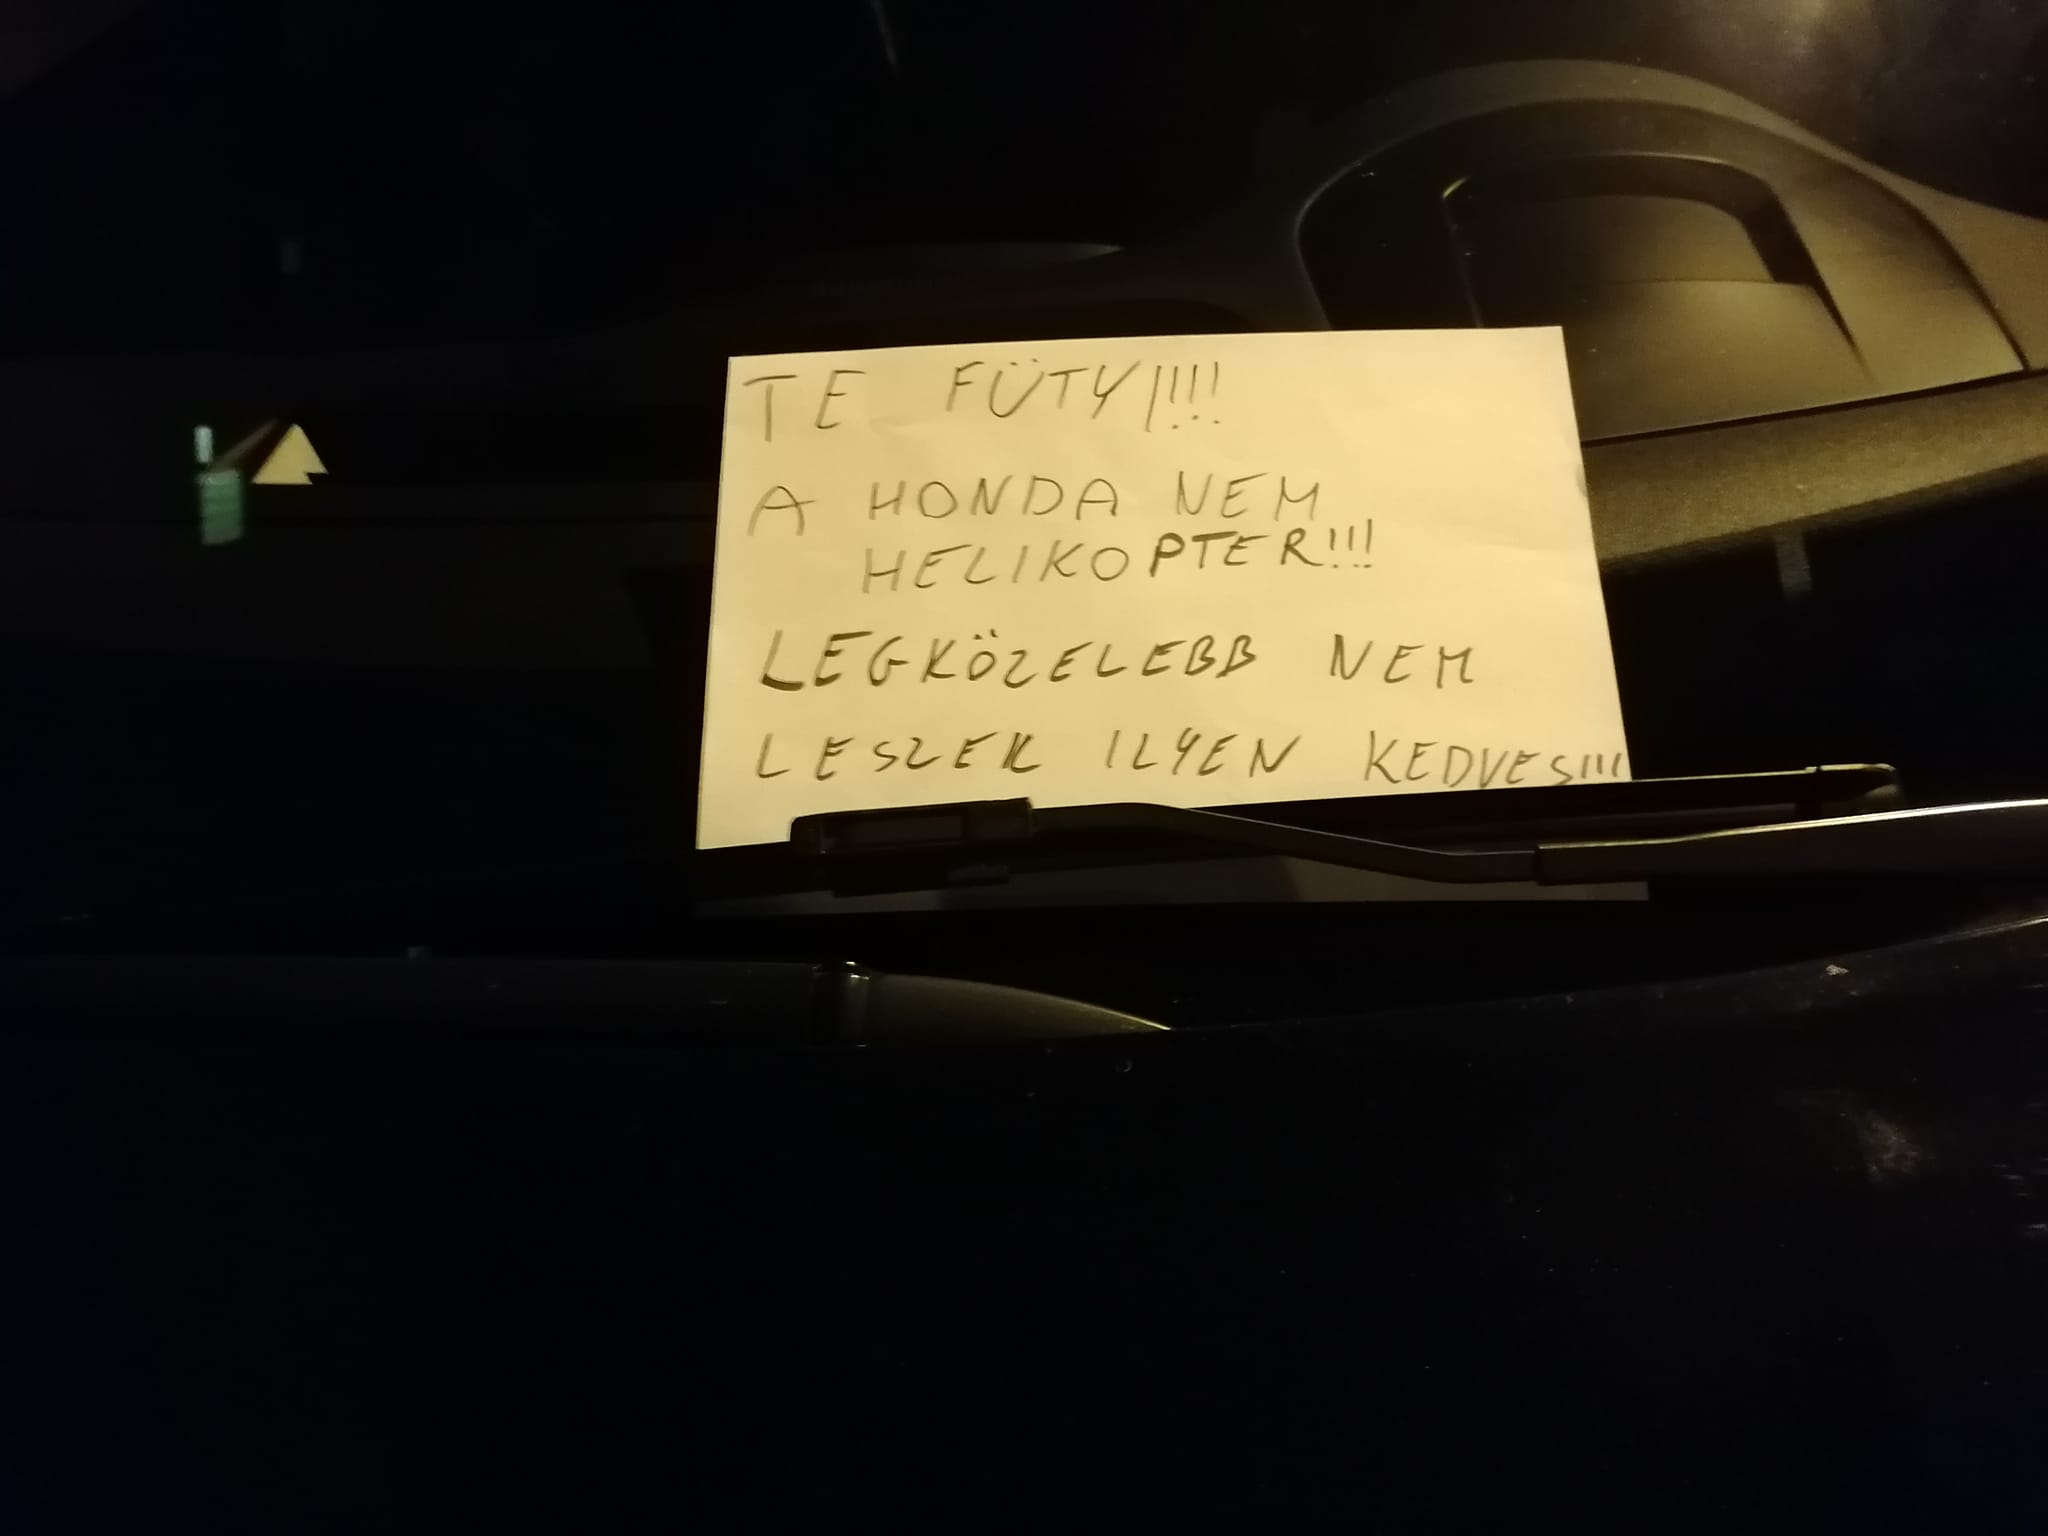 TE FÜTY!!!!
A HONDA NEM
HELIKOPTER!!!
LEGKÖZELEBB NEM
LESZEK ILYEN KEDVES!!!